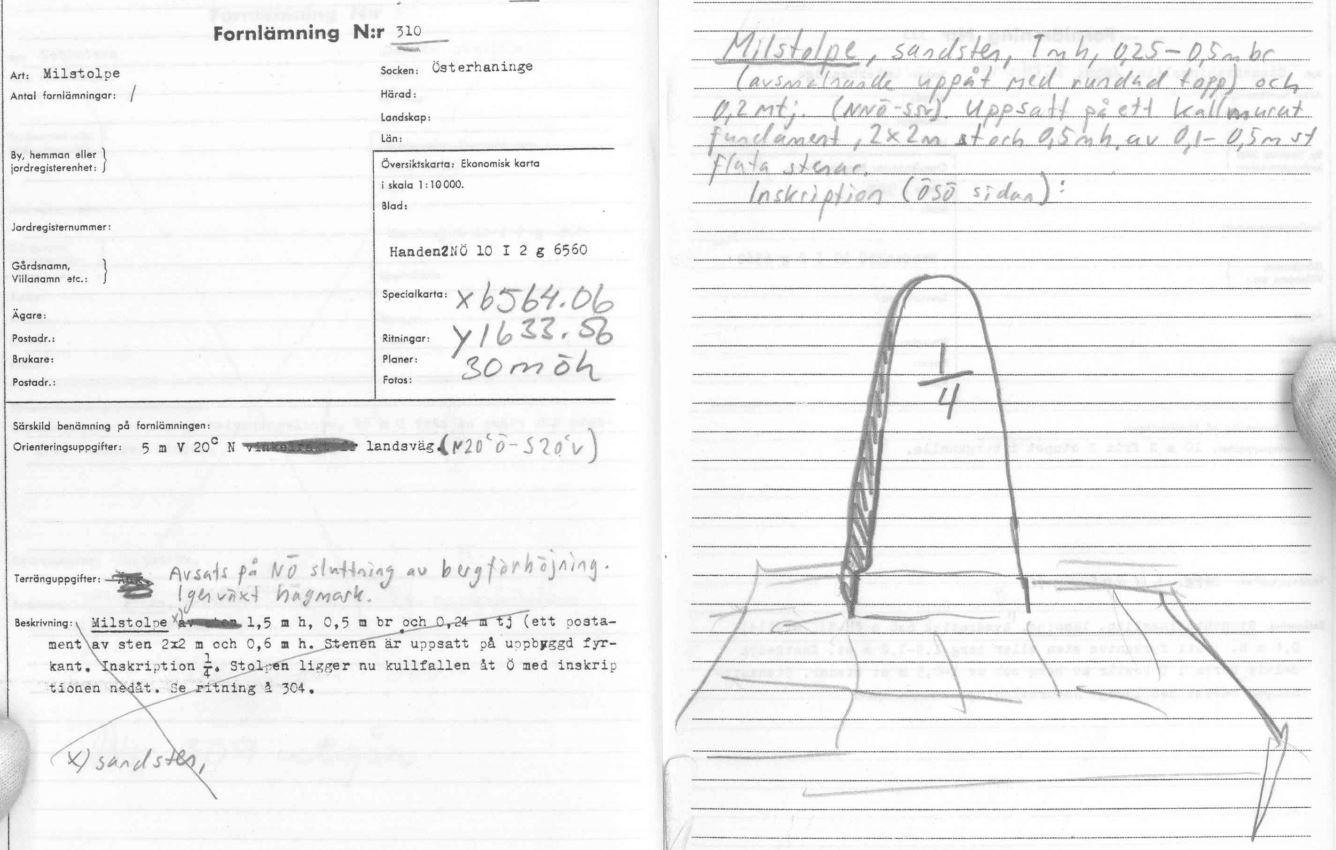 Fornlämning N:r 310
Art: Milstolpe
Antal fornlämningar: 1
Socken: Österhaninge
Härad:
Landskap:
Län:
By, hemman eller
jordregisterenhet:
Översiktskarta: Ekonomisk karta
i skala 1:10000.
Blad:
Jordregisternummer:
Handen2NÖ 10 I 2 g 6560
Gårdsnamn,
Villanamn etc.:
Specialkarta: x6564.06
Ägare:
Postadr.:
Ritningar: y1633.56
Brukare:
Planer: 30 möh
Postadr.:
Fotos:
Särskild benämning på fornlämningen:
Orienteringsuppgifter: 5 m V 20° N landsväg (N20°Ö-S20°V)
Terränguppgifter: Avsats på NÖ sluttning av bergförhöjning.
Igenväxt hagmark.
Beskrivning: Milstolpe x) av sten 1,5 m h, 0,5 m br och 0,24 m tj (ett posta-
ment av sten 2x2 m och 0,6 m h. Stenen är uppsatt på uppbyggd fyr-
kant. Inskription 1/4. Stolpen ligger nu kullfallen åt Ö med inskrip
tionen nedåt. Se ritning å 304.
x) sandsten,
Milstolpe, sandsten, 1 m h, 0,25-0,5 m br
(avsmalnande uppåt med rundad topp) och
0,2 m tj. (NNÖ-SSV). Uppsatt på ett kallmurat
fundament, 2x2 m st och 0,5 m h, av 0,1-0,5 m st
flata stenar.
Inskription (ÖSÖ sidan):
1/4